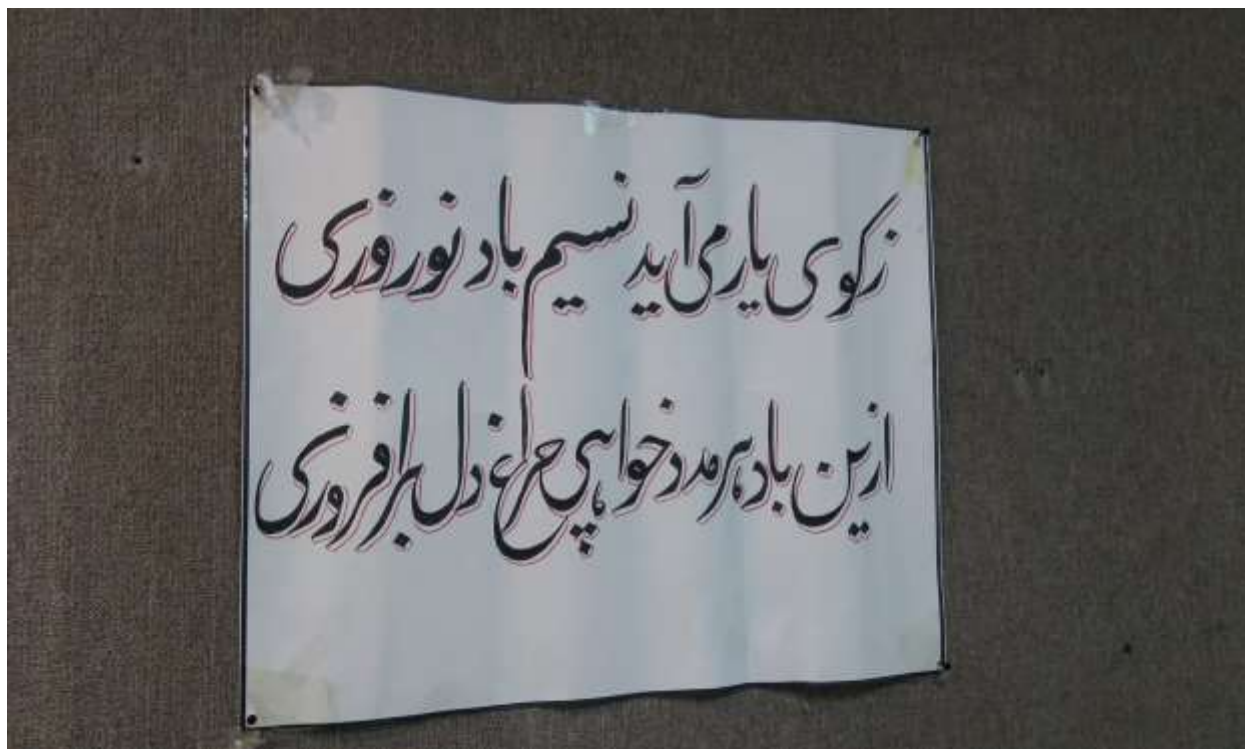 زکوی یار می آید نسیم باد نوروزی
ازین باد هر مدد خواهی چراغ دل برافروزی